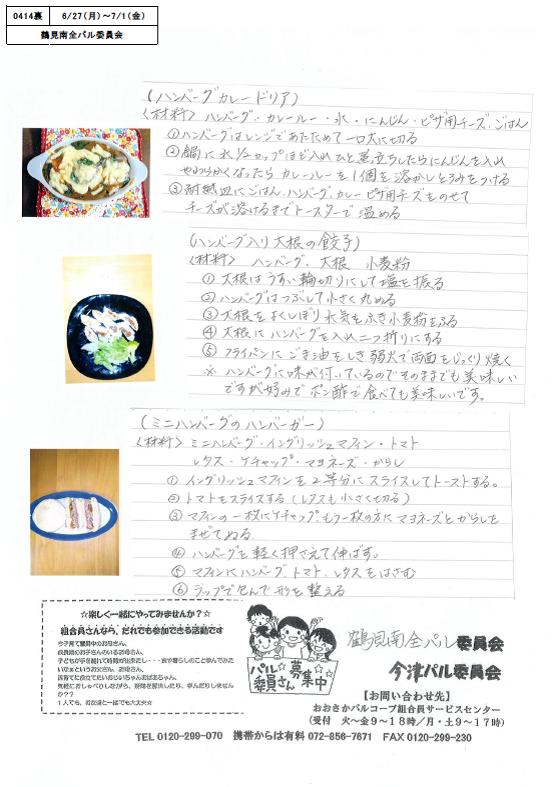 0414裏 6/27(月)～7/1(金)
鶴見南全パル委員会
(ハンバーグカレードリア)
〈材料〉ハンバーグ・カレールー・水・にんじん・ピザ用チーズ・ごはん
①ハンバーグはレンジであたためて一口大に切る
②鍋に水1/2カップほど入れひと煮立ちしたらにんじんを入れ
やわらかくなったらカレールーを1個を溶かしとろみをつける
③耐熱皿にごはん、ハンバーグ、カレー ピザ用チーズをのせて
チーズが溶けるまでトースターで温める
(ハンバーグ入り大根の餃子)
〈材料〉 ハンバーグ・大根 小麦粉
①大根はうすい輪切りにして塩を振る
②ハンバーグはつぶして小さく丸める
③大根をよくしぼり水気をふき小麦粉をふる
④大根にハンバーグを入れ二つ折りにする
⑤フライパンにごま油をしき弱火で両面をじっくり焼く
※ハンバーグに味が付いているのでそのままでも美味しい
ですが好みでポン酢で食べても美味しいです。
(ミニハンバーグのハンバーガー)
〈材料〉ミニハンバーグ・イングリッシュマフィン・トマト
レタス・ケチャップ・マヨネーズ・からし
①イングリッシュマフィンを2等分にスライスしてトーストする。
②トマトをスライスする(レタスも小さく切る)
③マフィンの一枚にケチャップ、もう一枚の方にマヨネーズとからしを
まぜてぬる
④ハンバーグを軽く押さえて伸ばす。
⑤マフィンにハンバーグ、トマト、レタスをはさむ
⑥ラップで包んで形を整える
☆楽しく一緒にやってみませんか？☆
組合員さんなら、だれでも参加できる活動です
今子育て奮闘中のお母さん、
子どもが手を離れて時間が出来たし・・・食や暮らしのこと学んでみた
いなぁというお父さん、お母さん、
子育てに役立てたいおじいちゃんおばあちゃん、
気軽におしゃべりしながら、疑問を解決したり、学んだりしません
か？？
1人でも、お友達と一緒でも大丈夫☆
パル☆委員さん募集中
鶴見南全パル委員会
今津パル委員会
【お問い合わせ先】
おおさかパルコープ組合員サービスセンター
(受付 火～金9～18時/月・土9～17時)
TEL 0120-299-070 携帯からは有料 072-856-7671 FAX 0120-299-230